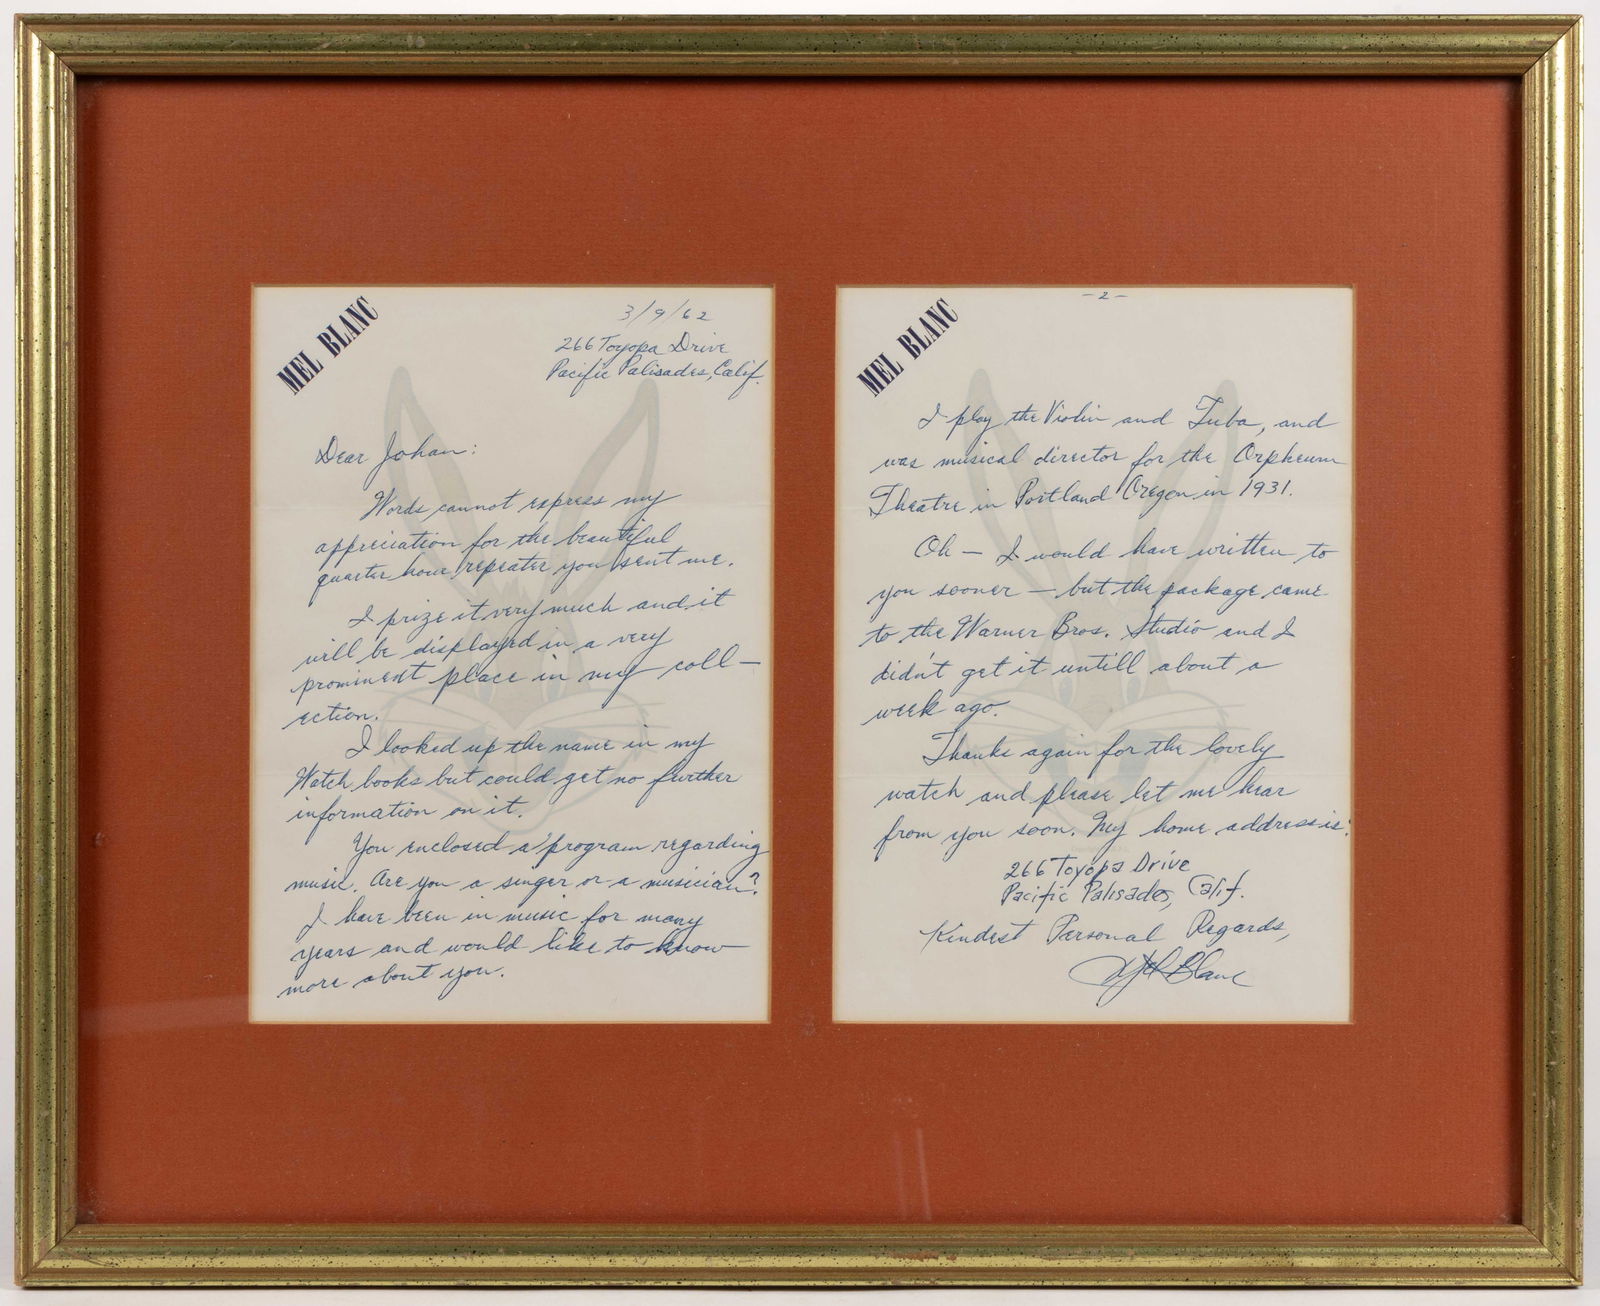 MEL BLANC
3/9/62
266 Toyopa Drive
Pacific Palisades, Calif.
Dear Johan:
Words cannot express my
appreciation for the beautiful
quarter hour repeater you sent me.
I prize it very much and it
will be displayed in a very
prominent place in my coll-
ection.
I looked up the name in my
Watch books but could get no further
information on it.
You enclosed a program regarding
music. Are you a singer or a musician?
I have been in music for many
years and would like to know
more about you.
-2-
MEL BLANC
I play the Violin and Tuba, and
was musical director for the Orpheum
Theatre in Portland Oregon in 1931.
Oh — I would have written to
you sooner — but the package came
to the Warner Bros. Studio and I
didn't get it untill about a
week ago.
Thanks again for the lovely
watch and please let me hear
from you soon. My home address is:
266 Toyopa Drive
Pacific Palisades, Calif.
Kindest Personal Regards,
Mel Blanc